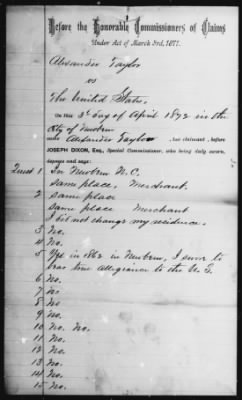 Before the Honorable Commissioners of Claims
Under Act of March 3rd, 1871.
Alexander Taylor
vs
The United States.
On this 3d day of April 1872 in the
City of Newbern
came Alexander Taylor, claimant, before
JOSEPH DIXON, Esq., Special Commissioner, who being duly sworn,
deposes and says:
Quest 1 In Newbern N.C.
same place. Merchant.
2 same place
same place Merchant
I did not change my residence.
3 No.
4 No.
5 Yes in 1862 in Newbern, I swore to
bear true allegiance to the U.S.
6 No.
7 No
8 No
9 No.
10 No. No.
11 No.
12 No.
13 No.
14 No.
15 No.